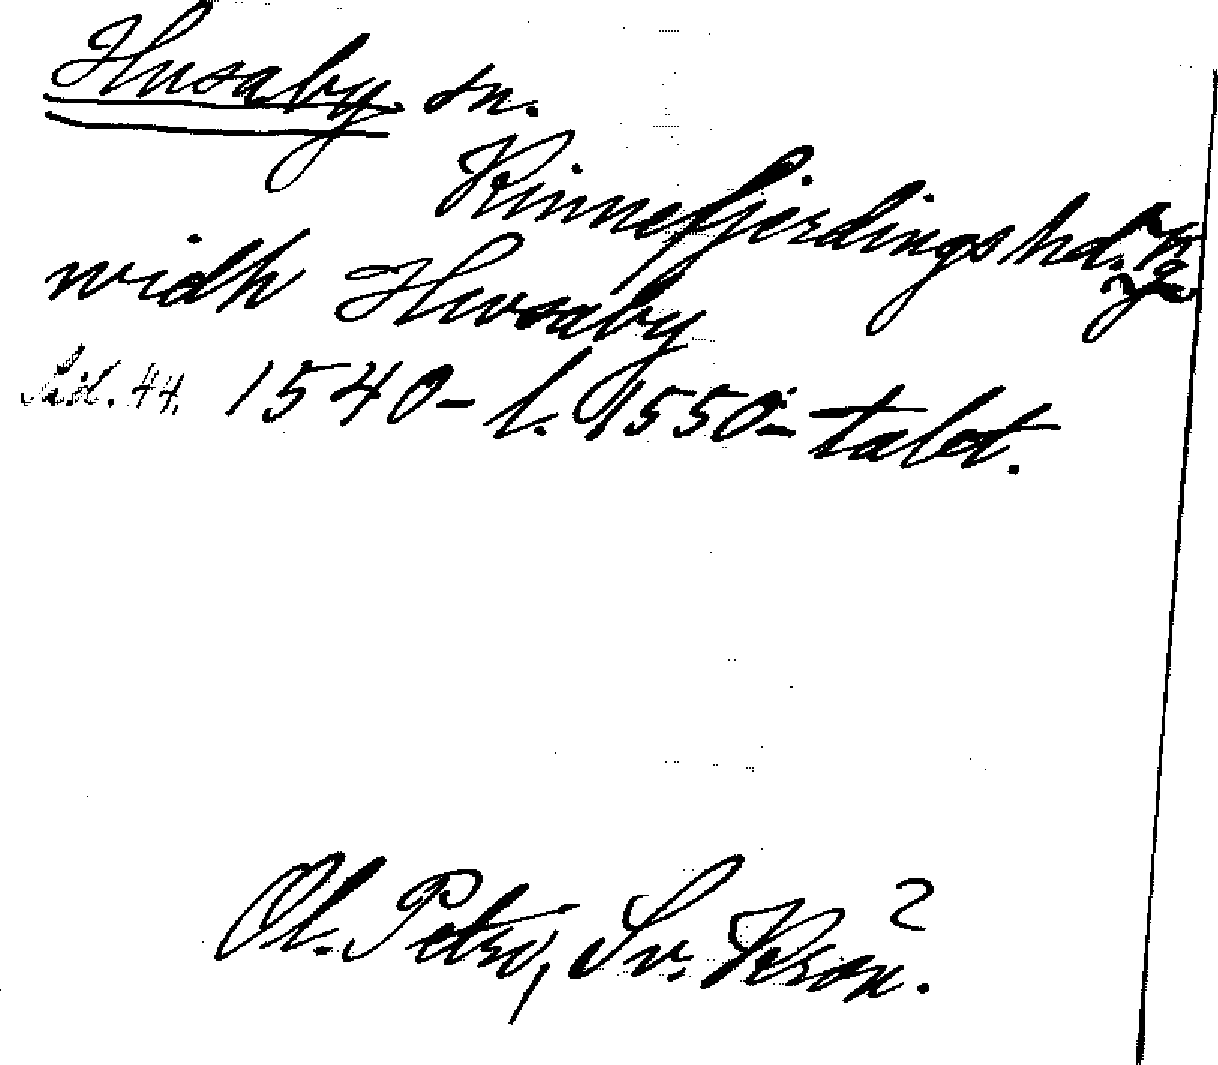 Husaby sn.
Kinnefjerdings hd.
widh Husaby
Sid. 44. 1540- l. 1550-talet.
Ol. Petri, Sv. Krön. 2